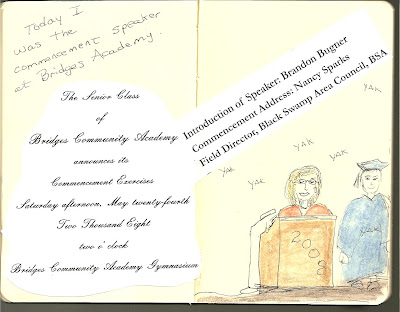 Today I
was the
commencement speaker
at Bridges Academy.
The Senior Class
of
Bridges Community Academy
announces its
Commencement Exercises
Saturday afternoon, May twenty-fourth
Two Thousand Eight
two o'clock
Bridges Community Academy Gymnasium
Introduction of Speaker: Brandon Bugner
Commencement Address: Nancy Sparks
Field Director, Black Swamp Area Council, BSA
YAK
YAK
YAK
YAK
YAK
YAK
2008